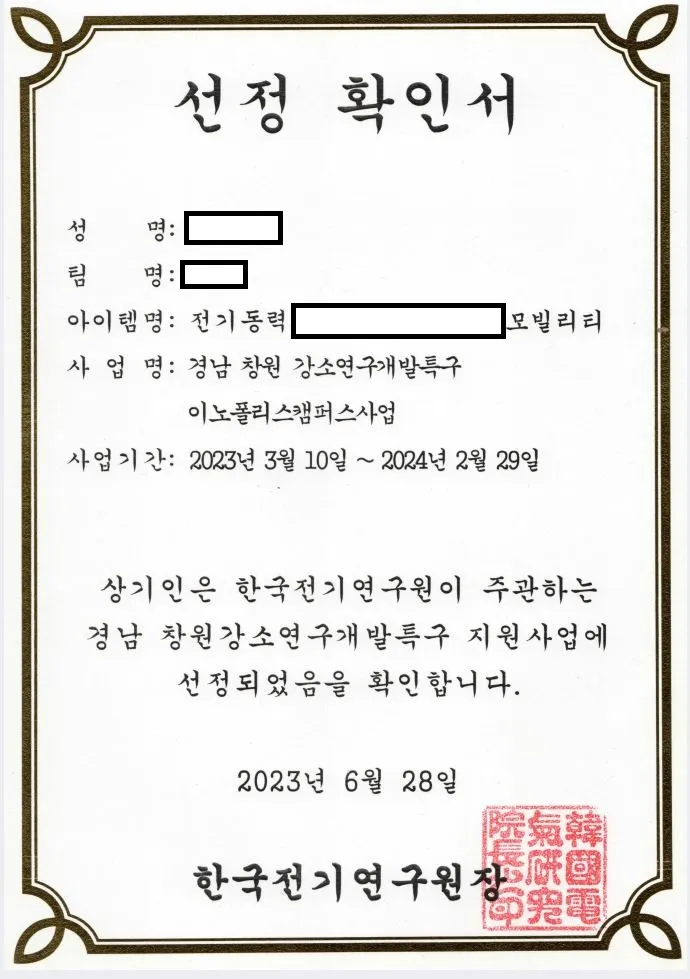 선정 확인서
성 명:
팀 명:
아이템명: 전기동력 모빌리티
사 업 명: 경남 창원 강소연구개발특구
이노폴리스캠퍼스사업
사업기간: 2023년 3월 10일 ~ 2024년 2월 29일
상기인은 한국전기연구원이 주관하는
경남 창원강소연구개발특구 지원사업에
선정되었음을 확인합니다.
2023년 6월 28일
한국전기연구원장
韓國電
氣硏究
院長印